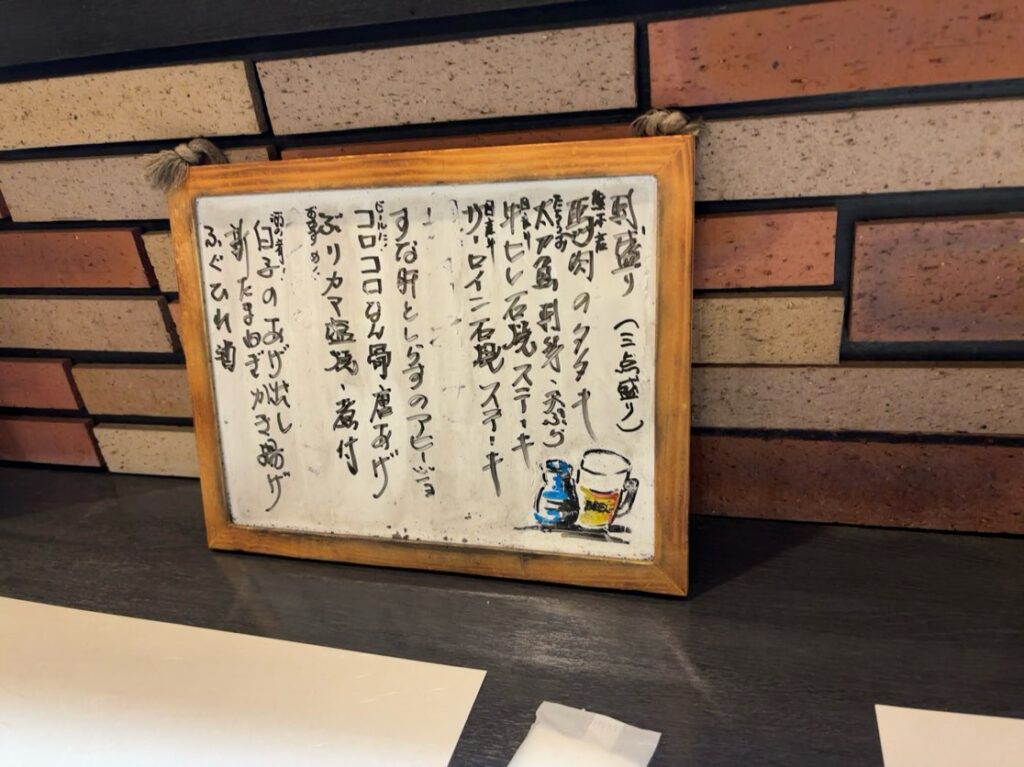 刺盛り(三点盛り)
熊本産
馬肉のタタキ
たちうお
太刀魚刺身、天ぷら
牛ヒレ石焼ステーキ
国産牛
サーロイン石焼ステーキ
すな肝としらすのアヒージョ
ビールに!
コロコロなん骨唐あげ
おすすめ!
ぶりカマ塩焼、煮付
酒の肴!
白子のあげ出し
新たまねぎかき揚げ
ふぐひれ酒
BEER